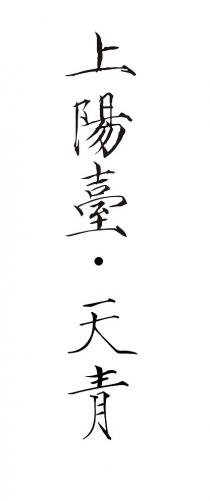 上陽臺・天青